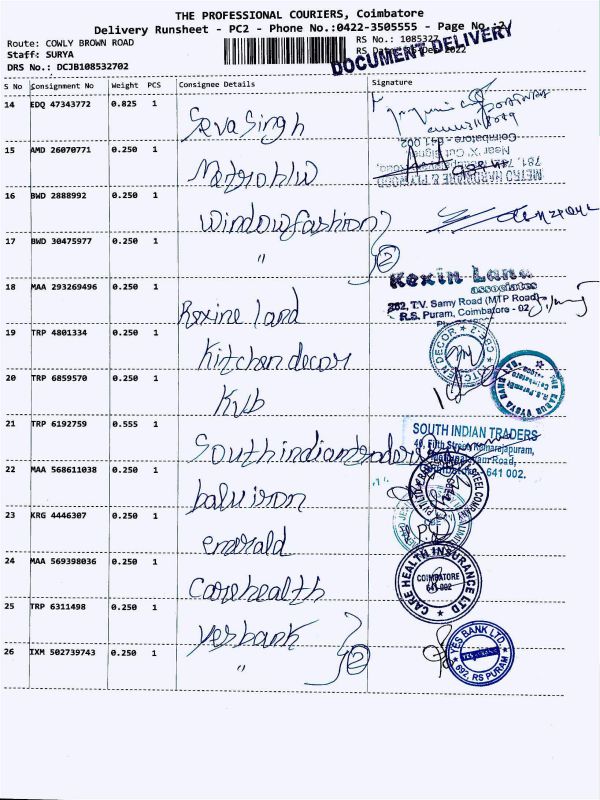 THE PROFESSIONAL COURIERS, Coimbatore
Delivery Runsheet - PC2 - Phone No.:0422-3505555 - Page No.:2/
Route: COWLY BROWN ROAD
RS No.: 1085327
Staff: SURYA
RS Date: -Dec-2022
DOCUMENT DELIVERY
DRS No.: DCJB108532702
S No Consignment No Weight PCS Consignee Details Signature
14 EDQ 47343772 0.825 1 Seva Singh
15 AMD 26070771 0.250 1 Metro h/w
METRO HARDWARE & PLYWOOD
781,
Near 'X' Cut Signal,
Coimbatore - 641 002
16 BWD 2888992 0.250 1 Window fashion
17 BWD 30475977 0.250 1 " 2
18 MAA 293269496 0.250 1 Rexine land
Rexin Land
associates
262, T.V. Samy Road (MTP Road)
R.S. Puram, Coimbatore - 02
19 TRP 4801334 0.250 1 Kitchen decor
KITCHEN DECOR ★ CBE-2 ★
20 TRP 6859570 0.250 1 Kvb
THE KARUR VYSYA BANK LTD.
R.S. Puram
Coimbatore
21 TRP 6192759 0.555 1 South indian traders
SOUTH INDIAN TRADERS
Fifth Street, Kamarajapuram,
641 002.
22 MAA 568611038 0.250 1 balu iron
23 KRG 4446307 0.250 1 emerald
24 MAA 569398036 0.250 1 Care health
CARE HEALTH INSURANCE LTD
COIMBATORE
641 002
25 TRP 6311498 0.250 1 yes bank
26 IXM 502739743 0.250 1 " 2
YES BANK LTD.
692, RS PURAM